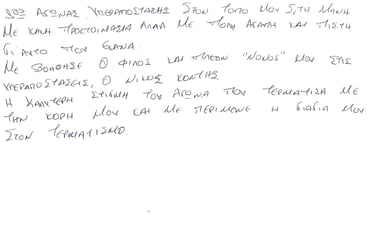 1ος ΑΓΩΝΑΣ ΥΠΕΡΑΠΟΣΤΑΣΗΣ ΣΤΟΝ ΤΟΠΟ ΜΟΥ ΣΤΗ ΜΑΝΗ
ΜΕ ΚΑΛΗ ΠΡΟΕΤΟΙΜΑΣΙΑ ΑΛΛΑ ΜΕ ΠΟΛΛΗ ΑΓΑΠΗ ΚΑΙ ΠΙΣΤΗ
ΓΙ ΑΥΤΟ ΠΟΥ ΕΚΑΝΑ.
ΜΕ ΒΟΗΘΗΣΕ Ο ΦΙΛΟΣ ΚΑΙ ΠΛΕΟΝ "ΝΟΝΟΣ" ΜΟΥ ΣΤΙΣ
ΥΠΕΡΑΠΟΣΤΑΣΕΙΣ, Ο ΝΙΚΟΣ ΚΟΝΤΗΣ
Η ΚΑΛΥΤΕΡΗ ΣΤΙΓΜΗ ΤΟΥ ΑΓΩΝΑ ΠΟΥ ΤΕΡΜΑΤΙΣΑ ΜΕ
ΤΗΝ ΚΟΡΗ ΜΟΥ ΚΑΙ ΜΕ ΠΕΡΙΜΕΝΕ Η ΓΙΑΓΙΑ ΜΟΥ
ΣΤΟΝ ΤΕΡΜΑΤΙΣΜΟ.